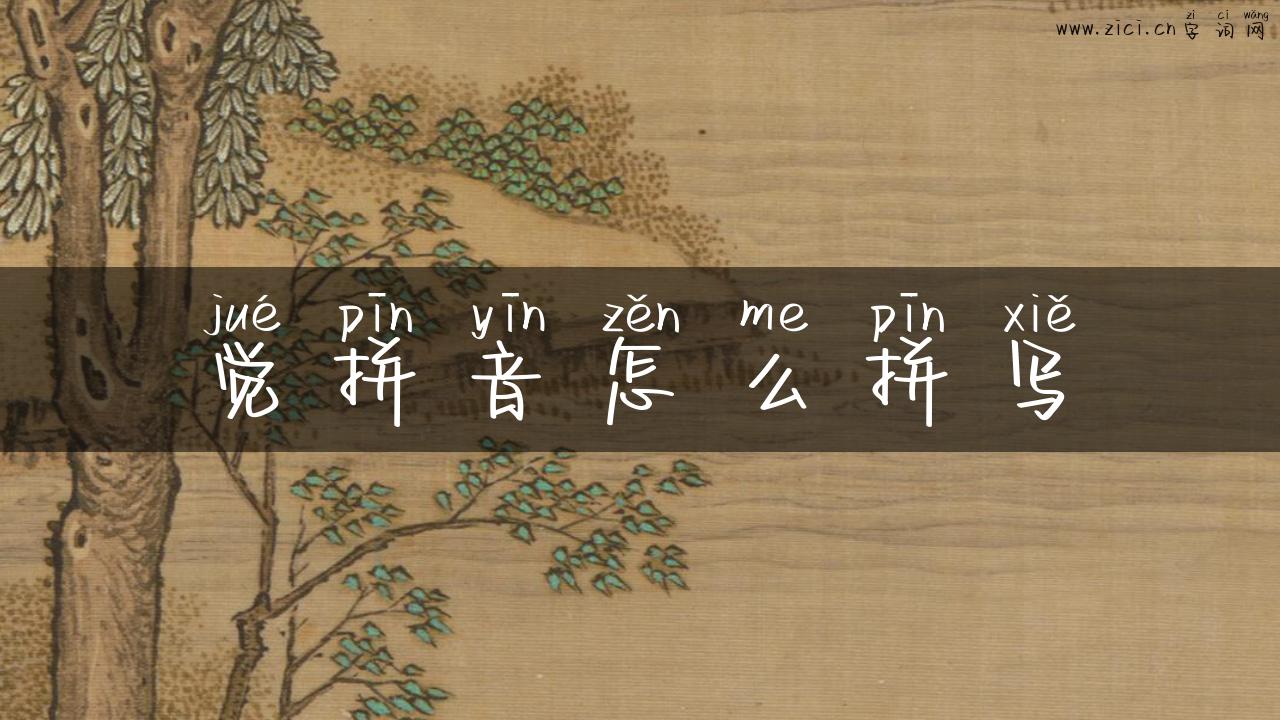 zì cí wǎng
www.zici.cn 字词网
jué pīn yīn zěn me pīn xiě
觉拼音怎么拼写